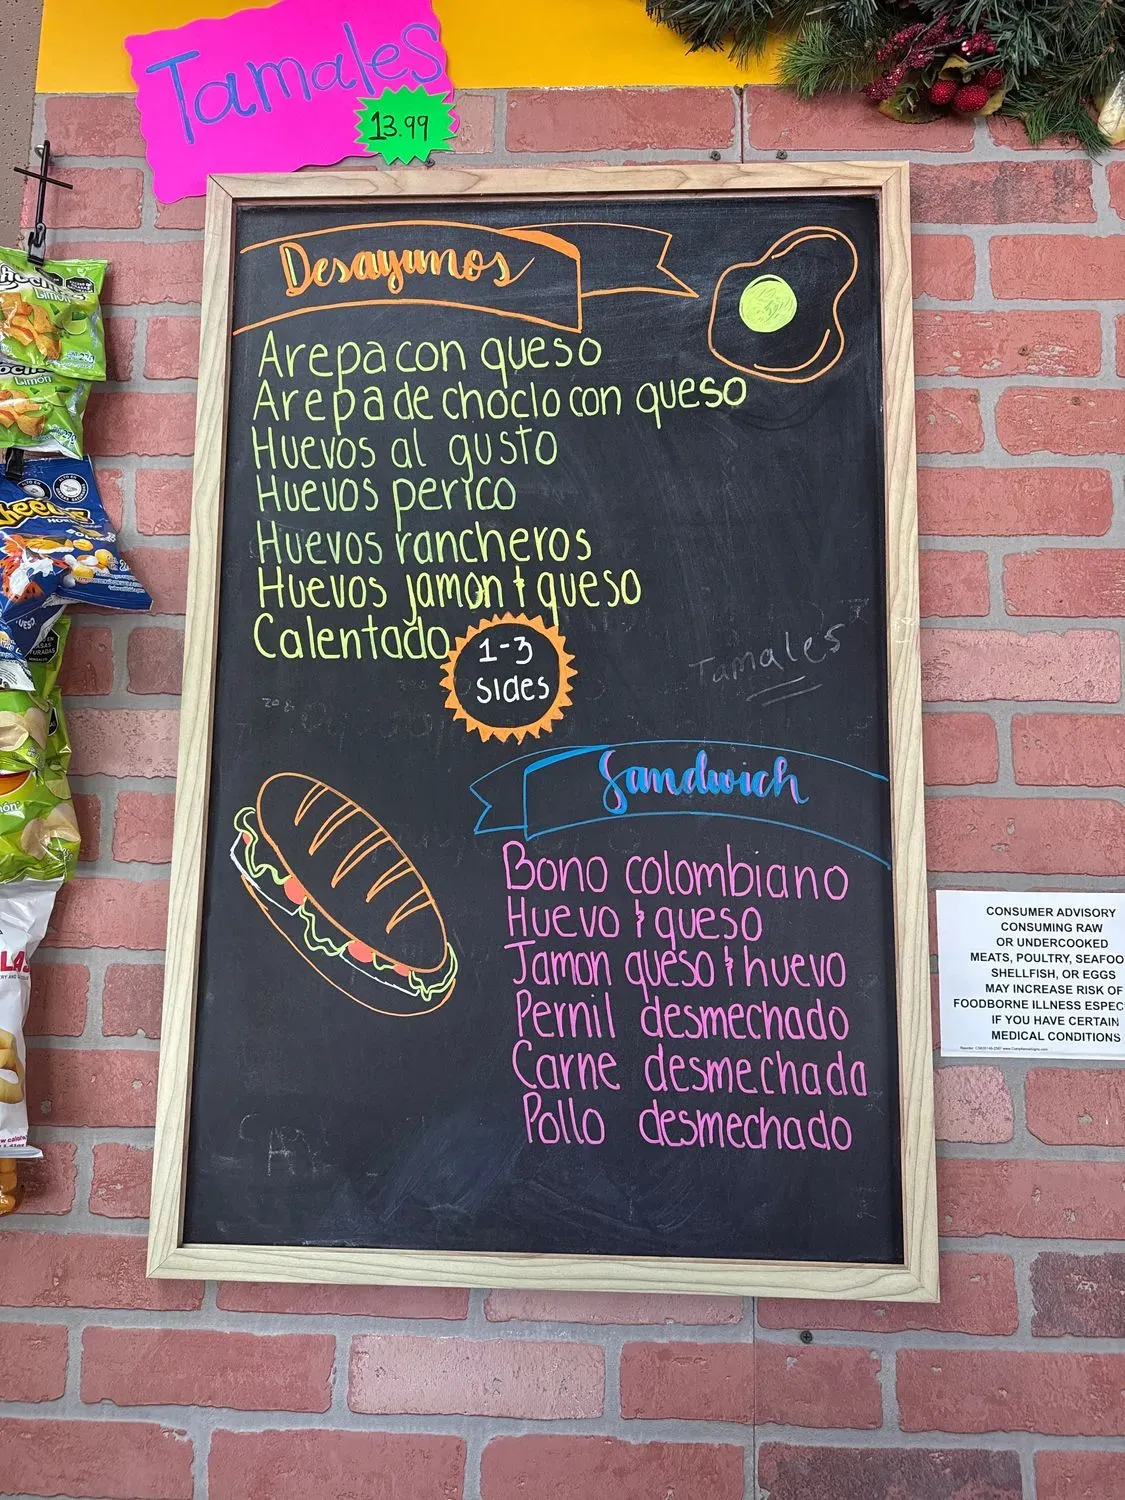 Tamales
13.99
Desayunos
Arepa con queso
Arepa de choclo con queso
Huevos al gusto
Huevos perico
Huevos rancheros
Huevos jamon & queso
Calentado
1-3
sides
Tamales
Sandwich
Bono colombiano
Huevo & queso
Jamon queso & huevo
Pernil desmechado
Carne desmechada
Pollo desmechado
Limón
Limón
CONSUMER ADVISORY
CONSUMING RAW
OR UNDERCOOKED
MEATS, POULTRY, SEAFOO
SHELLFISH, OR EGGS
MAY INCREASE RISK OF
FOODBORNE ILLNESS ESPEC
IF YOU HAVE CERTAIN
MEDICAL CONDITIONS